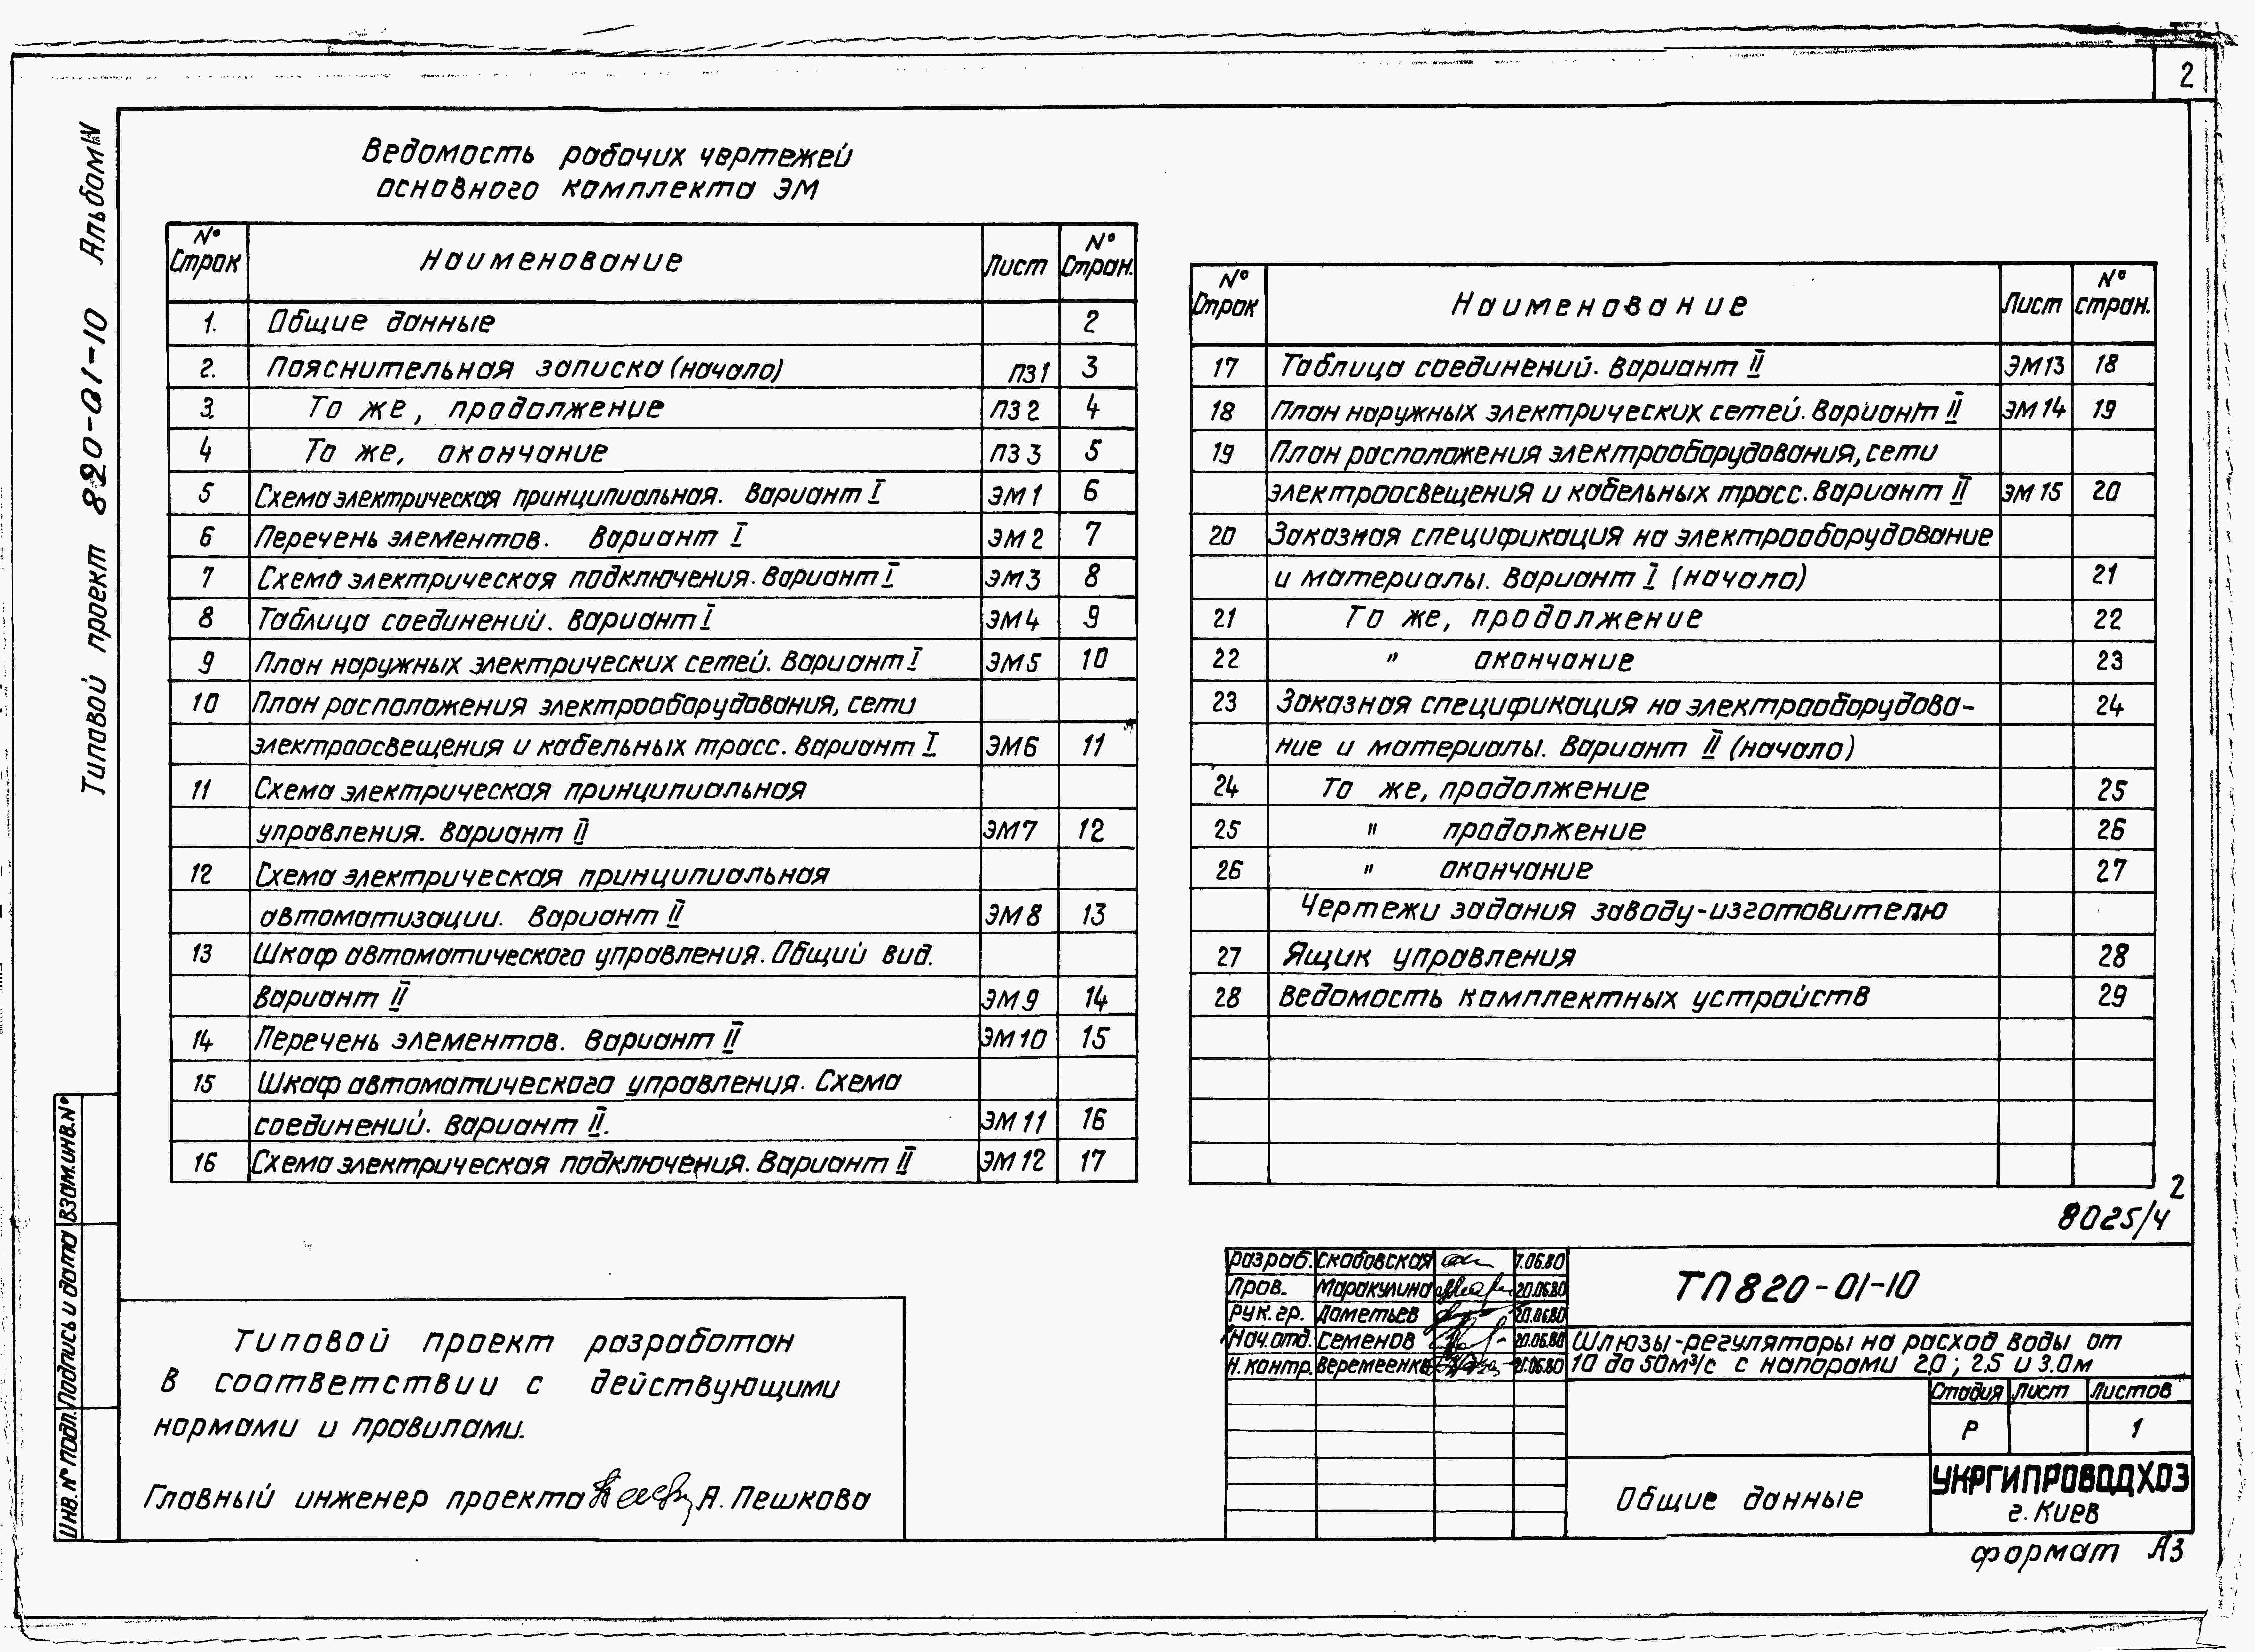 2
Типовой проект 820-01-10 Альбом IV
Ведомость рабочих чертежей
основного комплекта ЭМ
№ Строк Наименование Лист № Стран.
1. Общие данные 2
2. Пояснительная записка (начало) ПЗ 1 3
3. То же, продолжение ПЗ 2 4
4 То же, окончание ПЗ 3 5
5 Схема электрическая принципиальная. Вариант I ЭМ 1 6
6 Перечень элементов. Вариант I ЭМ 2 7
7 Схема электрическая подключения. Вариант I ЭМ 3 8
8 Таблица соединений. Вариант I ЭМ 4 9
9 План наружных электрических сетей. Вариант I ЭМ 5 10
10 План расположения электрооборудования, сети
электроосвещения и кабельных трасс. Вариант I ЭМ 6 11
11 Схема электрическая принципиальная
управления. Вариант II ЭМ 7 12
12 Схема электрическая принципиальная
автоматизации. Вариант II ЭМ 8 13
13 Шкаф автоматического управления. Общий вид.
Вариант II ЭМ 9 14
14 Перечень элементов. Вариант II ЭМ 10 15
15 Шкаф автоматического управления. Схема
соединений. Вариант II. ЭМ 11 16
16 Схема электрическая подключения. Вариант II ЭМ 12 17
№ Строк Наименование Лист № стран.
17 Таблица соединений. Вариант II ЭМ 13 18
18 План наружных электрических сетей. Вариант II ЭМ 14 19
19 План расположения электрооборудования, сети
электроосвещения и кабельных трасс. Вариант II ЭМ 15 20
20 Заказная спецификация на электрооборудование
и материалы. Вариант I (начало) 21
21 То же, продолжение 22
22 " окончание 23
23 Заказная спецификация на электрооборудова- 24
ние и материалы. Вариант II (начало)
24 То же, продолжение 25
25 " продолжение 26
26 " окончание 27
Чертежи задания заводу-изготовителю
27 Ящик управления 28
28 Ведомость комплектных устройств 29
2
8025/4
Инв. № подл. Подпись и дата Взам. инв. №
Типовой проект разработан
в соответствии с действующими
нормами и правилами.
Главный инженер проекта А. Пешкова
Разраб. Скабовская 7.06.80
Пров. Маракулина 20.06.80
Рук. гр. Дометьев 20.06.80
Нач. отд. Семенов 20.06.80
Н. контр. Веремеенко 21.06.80
ТП 820-01-10
Шлюзы-регуляторы на расход воды от
10 до 50м³/с с напорами 2.0; 2.5 и 3.0м
Стадия Лист Листов
Р 1
Общие данные
УКРГИПРОВОДХОЗ
г. Киев
формат А3